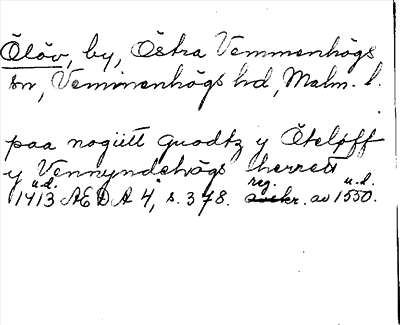 Ölöv, by, Östra Vemmenhögs
sn, Vemmenhögs hd, Malm. l.
paa nogütt guodtz y Ötelpff
y Vennyndehögs herrett
1413 u.d. ÆDA 4, s. 378. reg. av 1550. u.d.